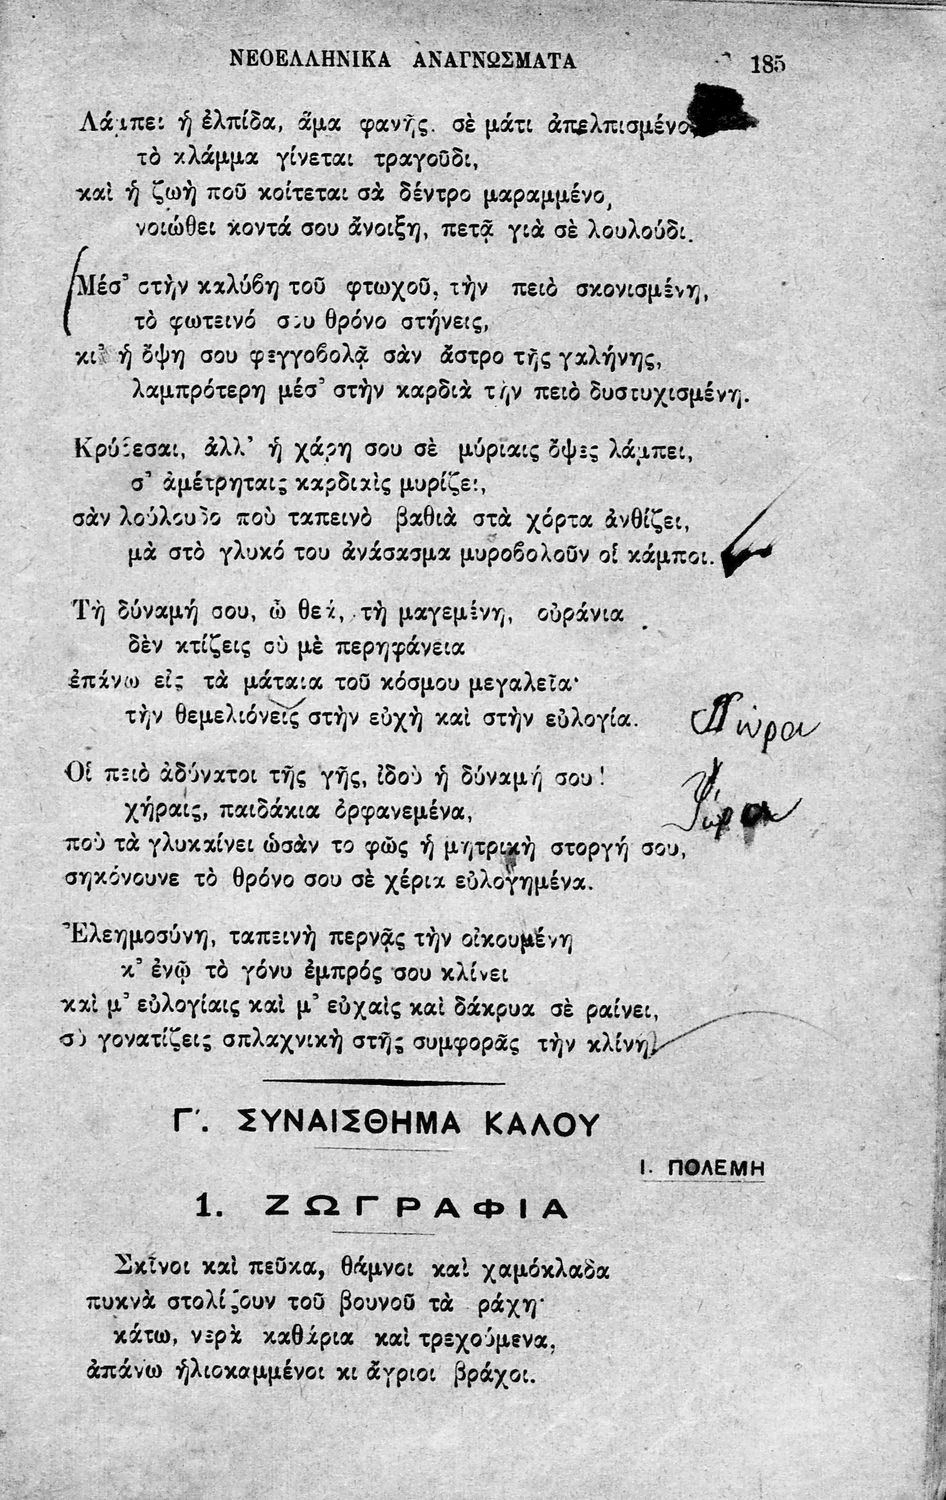 ΝΕΟΕΛΛΗΝΙΚΑ ΑΝΑΓΝΩΣΜΑΤΑ 185
Λάμπει ἡ ἐλπίδα, ἅμα φανῇς. σὲ μάτι ἀπελπισμένο
τὸ κλάμμα γίνεται τραγοῦδι,
καὶ ἡ ζωὴ ποῦ κοίτεται σὰ δέντρο μαραμμένο,
νοιώθει κοντά σου ἄνοιξη, πετᾷ γιὰ σὲ λουλούδι.
Μέσ' στὴν καλύβη τοῦ φτωχοῦ, τὴν πειὸ σκονισμένη,
τὸ φωτεινό σου θρόνο στήνεις,
κι' ἡ ὄψη σου φεγγοβολᾷ σὰν ἄστρο τῆς γαλήνης,
λαμπρότερη μέσ' στὴν καρδιὰ τὴν πειὸ δυστυχισμένη.
Κρύβεσαι, ἀλλ' ἡ χάρη σου σὲ μύριαις ὄψες λάμπει,
σ' ἀμέτρηταις καρδιαὶς μυρίζει,
σὰν λούλουδο ποὺ ταπεινὸ βαθιὰ στὰ χόρτα ἀνθίζει,
μὰ στὸ γλυκό του ἀνάσασμα μυροβολοῦν οἱ κάμποι.
Τὴ δύναμή σου, ὦ θεά, τὴ μαγεμένη, οὐράνια
δὲν κτίζεις σὺ μὲ περηφάνεια
ἐπάνω εἰς τὰ μάταια τοῦ κόσμου μεγαλεῖα·
τὴν θεμελιόνεις στὴν εὐχὴ καὶ στὴν εὐλογία.
Οἱ πειὸ ἀδύνατοι τῆς γῆς, ἰδοὺ ἡ δύναμή σου!
χήραις, παιδάκια ὀρφανεμένα,
ποὺ τὰ γλυκαίνει ὡσὰν το φῶς ἡ μητρικὴ στοργή σου,
σηκόνουνε τὸ θρόνο σου σὲ χέρια εὐλογημένα.
Ἐλεημοσύνη, ταπεινὴ περνᾷς τὴν οἰκουμένη
κ' ἐνῷ τὸ γόνυ ἐμπρός σου κλίνει
καὶ μ' εὐλογίαις καὶ μ' εὐχαὶς καὶ δάκρυα σὲ ραίνει,
σὺ γονατίζεις σπλαχνικὴ στῆς συμφορᾶς τὴν κλίνη.
Γ'. ΣΥΝΑΙΣΘΗΜΑ ΚΑΛΟΥ
Ι. ΠΟΛΕΜΗ
1. ΖΩΓΡΑΦΙΑ
Σκῖνοι καὶ πεῦκα, θάμνοι καὶ χαμόκλαδα
πυκνὰ στολίζουν τοῦ βουνοῦ τὰ ράχη·
κάτω, νερὰ καθάρια καὶ τρεχούμενα,
ἀπάνω ἡλιοκαμμένοι κι ἄγριοι βράχοι.